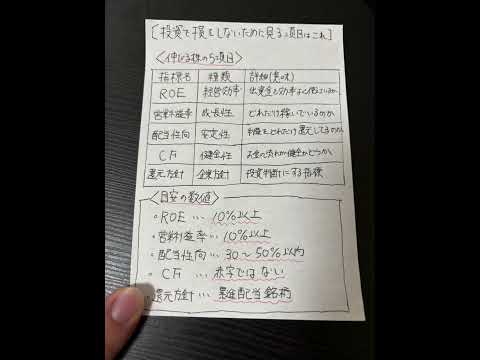 [投資で損をしないために見る項目はこれ]
<伸びる株の5項目>
指標名 種類 詳細(意味)
ROE 経営効率 出資金を効率よく使えているか
営業利益率 成長性 どれだけ稼いでいるのか
配当性向 安定性 利益をどれだけ還元してるのか
CF 健全性 お金の流れが健全かどうか
還元方針 企業方針 投資判断にする指標
<目安の数値>
・ROE … 10%以上
・営業利益率… 10%以上
・配当性向… 30〜50%以内
・CF … 赤字ではない
・還元方針… 累進配当銘柄